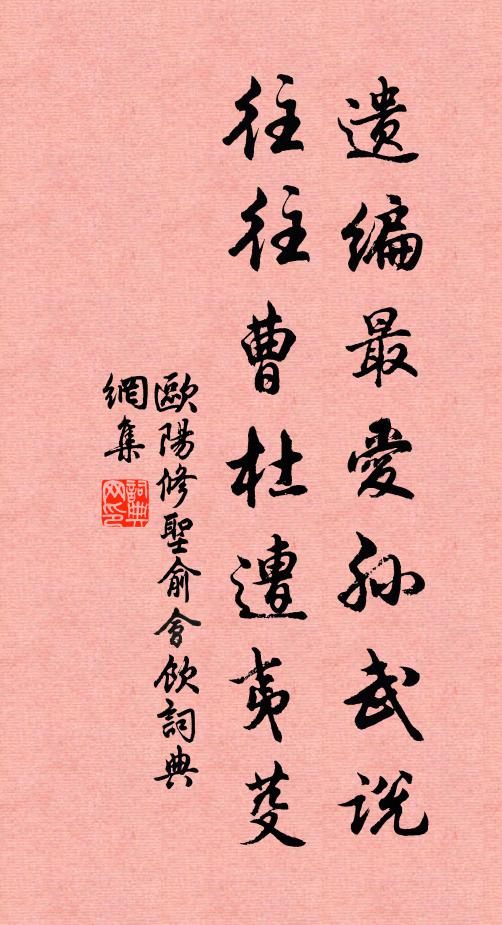 遗编最爱孙武说
往往曹杜遭夷芟
歐陽修聖俞會飲詞典
網集
詞典
网印